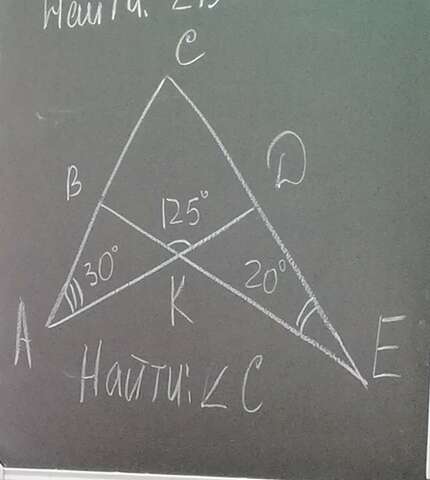 Найти:
C
B
D
125°
30°
20°
K
A
E
Найти: ∠ C